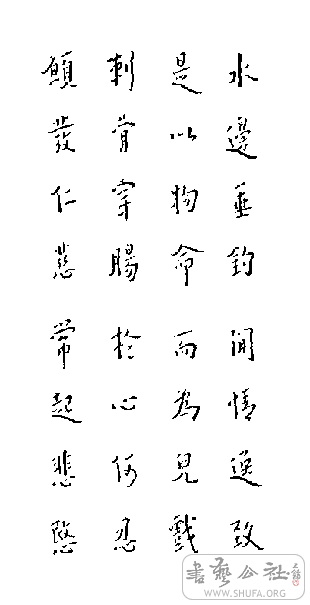 水邊垂釣閒情逸致
是以物命而為兒戲
刺骨穿腸於心何忍
願發仁慈常起悲愍
書藝公社
WWW.SHUFA.ORG